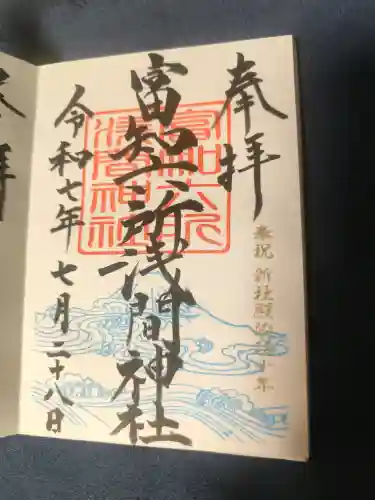 奉拝
奉祝 新社殿
十年
富知六所浅間神社
富知六所
浅間神社
令和七年七月二十八日
拝